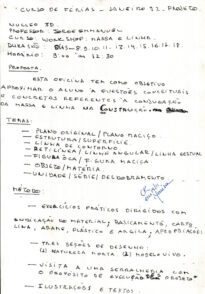 CURSO DE FERIAS - JANEIRO 92.
NUCLEO 3D
PROFESSOR: JORGE EMMANUEL
CURSO: WORKSHOP: MASSA E LINHA.
DURAÇÃO: DIAS - 8.9.10.11.13.14.15.16.17.18
HORÁRIO: 9:00 AS 12:30
PROPOSTA
ESTA OFICINA TEM COMO OBJETIVO
APROXIMAR O ALUNO A QUESTÕES CONCEITUAIS
E CONCRETOS REFERENTES A CONJUGAÇÃO
DA MASSA E LINHA NA CONSTRUÇÃO
TEMAS:
- PLANO ORIGINAL / PLANO MACIÇO
- ESTRUTURA / SUPERFICIE
- LINHA DE CONTORNO
- RETILINEA / LINHA ANGULAR / LINHA GESTUAL
- FIGURA OCA / FIGURA MACIÇA
- OBJETO / MATERIA
- UNIDADE / SÉRIE / DESDOBRAMENTO
MÉTODO:
- EXERCÍCIOS PRÁTICOS DIRIGIDOS COM
APLICAÇÃO DE MATERIAL, BASICAMENTE, CARTO,
LINHA, ARAME, PLASTICO E ARGILA, APROPRIAÇÕES
- TRES SESÕES DE DESENHO:
1) NATUREZA MORTA 2) MODELO VIVO.
- VISITA A UMA SERRALHERIA COM
O PROPÓSITO DE EXECUÇÃO DE OBJETO
- ILUSTRAÇÕES E TEXTOS.